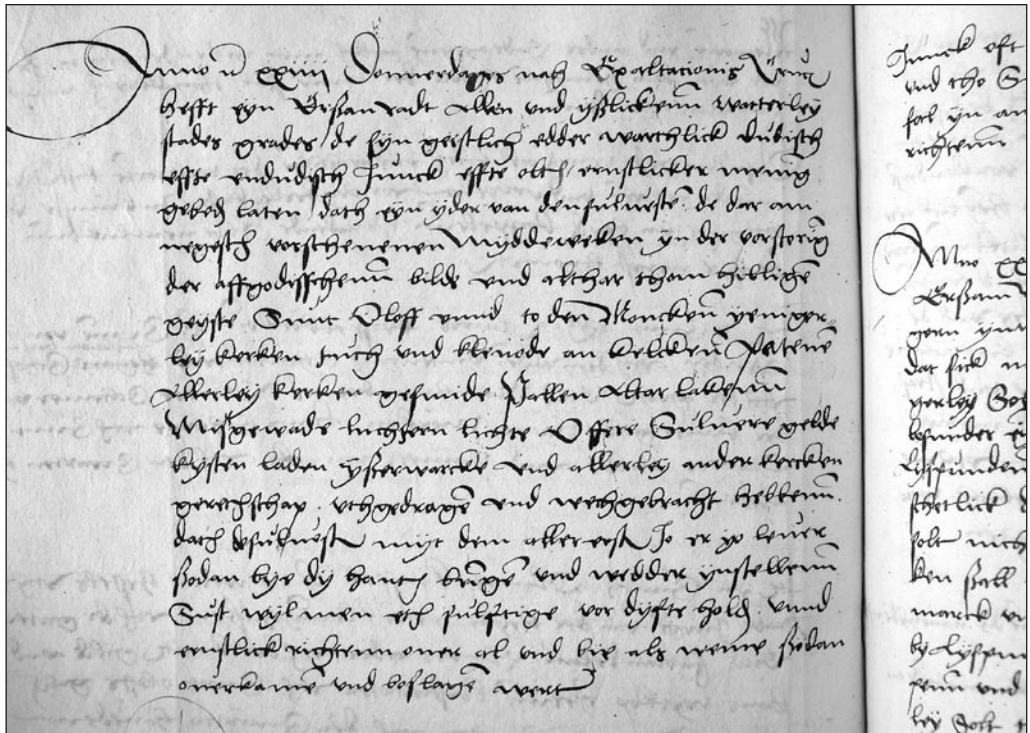 Anno xxiiii Donnerdages nah Exaltacionis Cruc
hefft eyn Erßam radt allen und yßlickenn watterley
stades grades de syn geistlich edder wartlick dudisch
effte undudisch Junck effte olth ernstlicker menig
geboden laten dath eyn yder van densulvesten de dar am
negesth vorschenenen Myddeweken yn der vorstoring
der affgodisschenn bilde und althar thom hilligen
geyste Sunt Oloff unnd to den Moncken yeniger
ley kerken tuch und klenode an kelcken Patenen
allerley kerken gesmide Pallen Altar lakenn
Mißgewade luchtern lichte Offere Suluere gelde
kysten laden yßerwarcke und allerley ander kercken
gerethschap uthgedragen und wechgebracht hebbenn
dath desulvest myt dem aller erst Jo er yo lever
ßodan bye dy hant bringen und wedder ynstellenn
Sust wyl men eth sulftige vor dyfte hold unnd
ernstlick richtenn over al und bie als weme ßodan
overkamen und beslagen wert
Junck oft
und tho S
sal yn an
richtenn
Anno xx
Erßam
gern ynw
dat sick
gerley
besunder
Lyspunden
schetlick
solt nich
ken sall
marck
by Lyspun
penn und
ley Solt